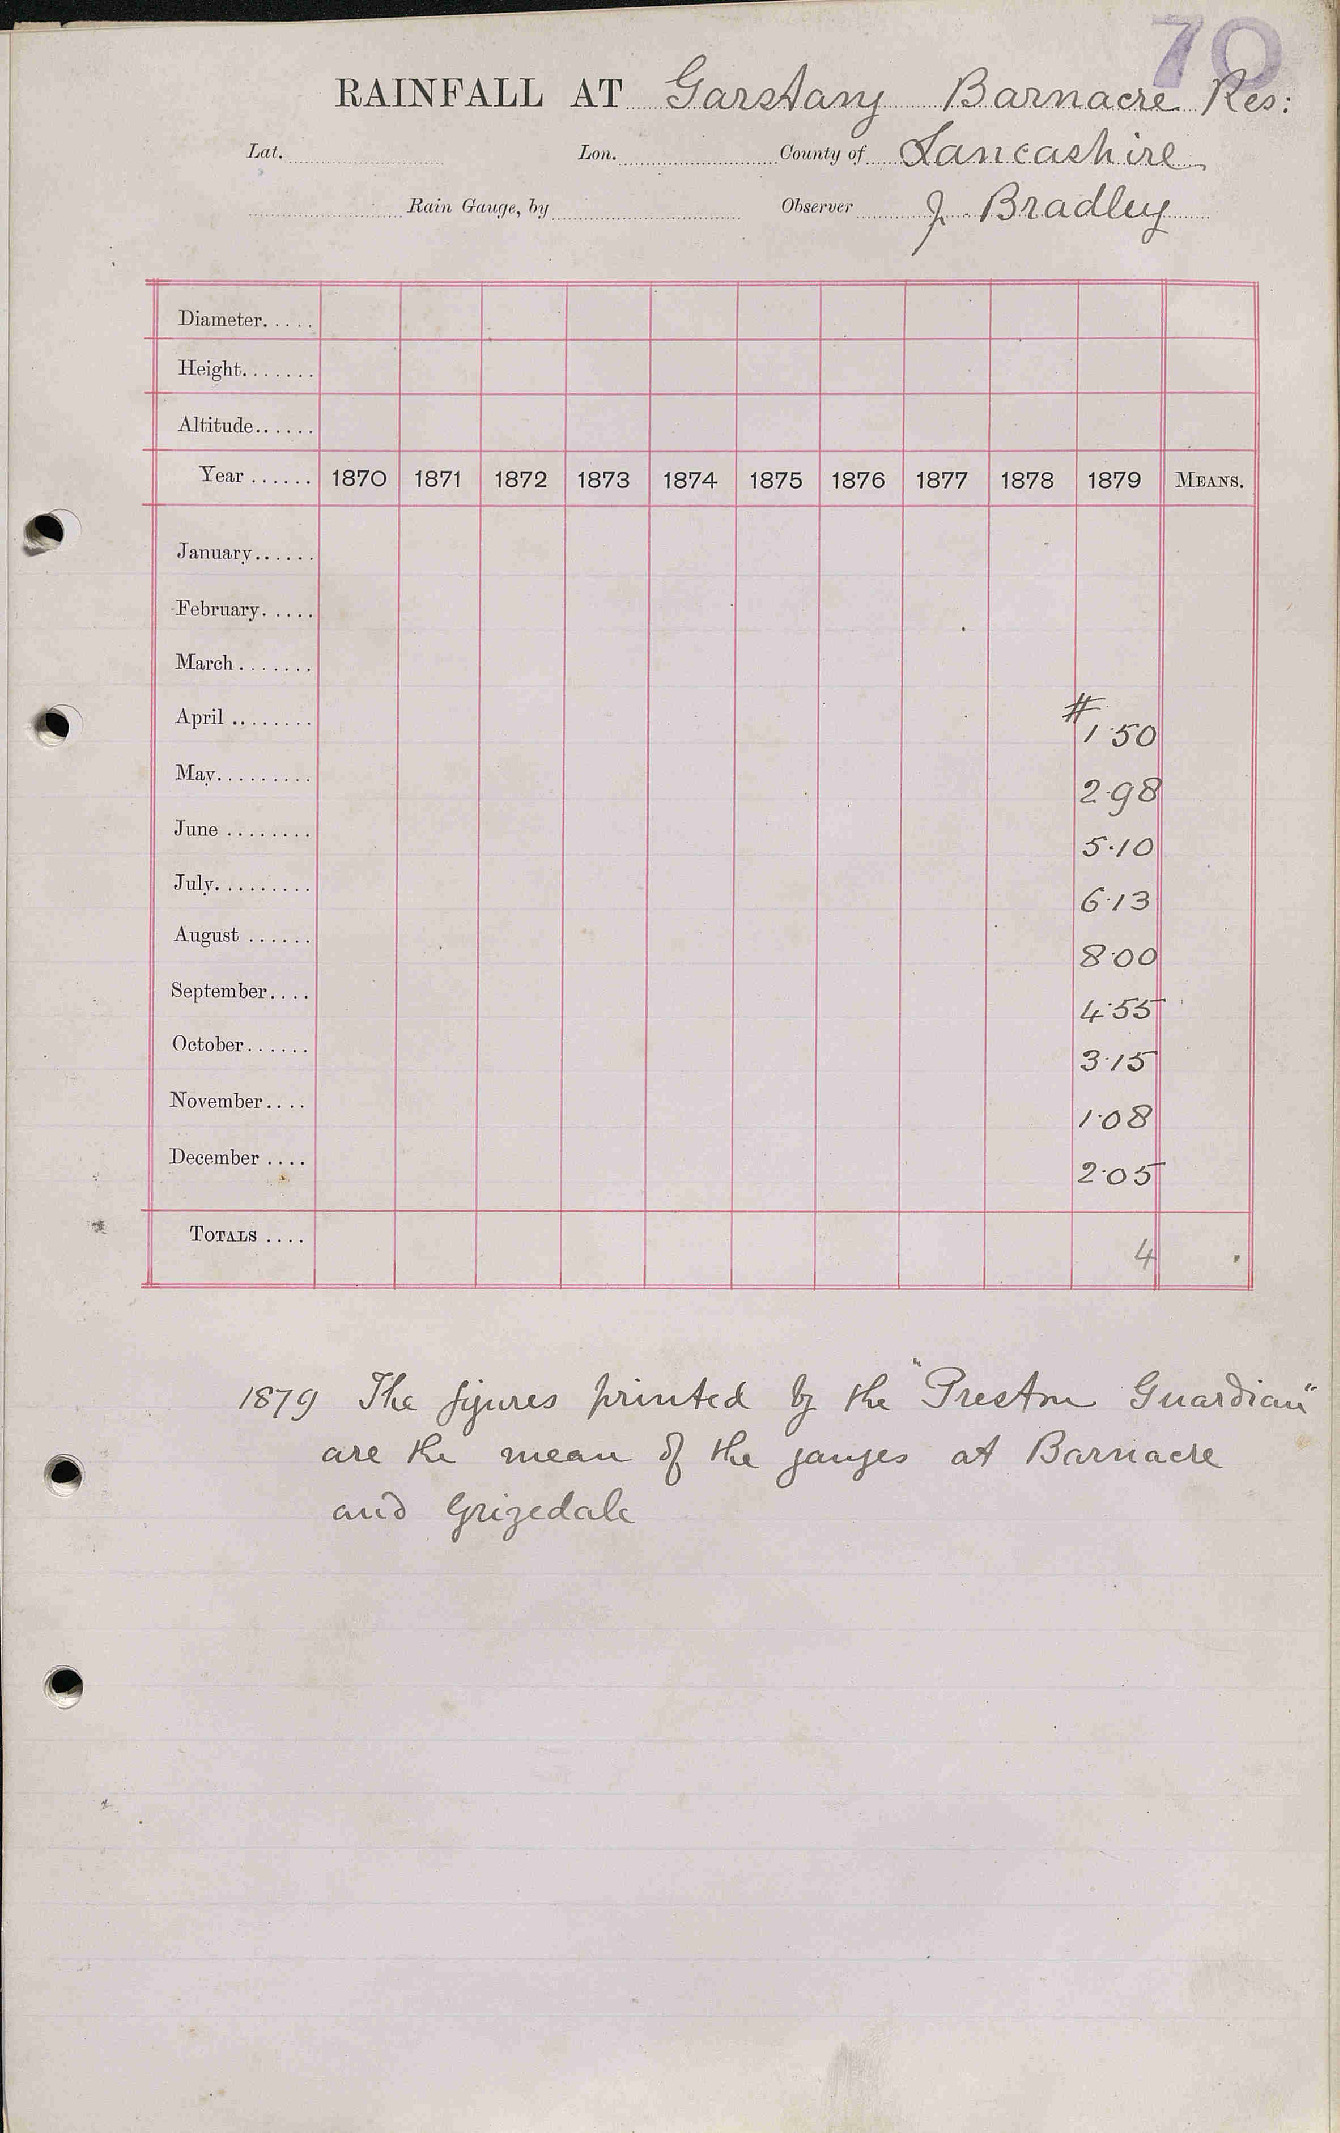 70
RAINFALL AT Garstang Barnacre Res:
Lat. Lon. County of Lancashire
Rain Gauge, by Observer J. Bradley
Diameter.....
Height.......
Altitude......
Year ...... 1870 1871 1872 1873 1874 1875 1876 1877 1878 1879 MEANS.
January......
February.....
March.......
April ........ # 1.50
May......... 2.98
June ........ 5.10
July......... 6.13
August ...... 8.00
September.... 4.55
October...... 3.15
November.... 1.08
December .... 2.05
TOTALS .... 4
1879 The figures printed by the "Preston Guardian"
are the mean of the gauges at Barnacre
and Grizedale